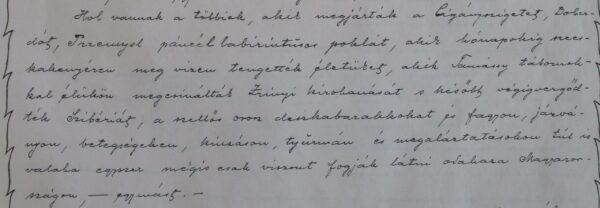 Hol vannak a többiek, akik megjárták a Cigányszigetet, Dober-
dót, Przemysl páncél labirintusos poklát, akik hónapokig szecs-
kakenyéren meg vizen tengették életüket, akik Tamássy tábornok-
kal élükön megcsinálták Zrinyi kirohanását s később végigvergőd-
ték Szibériát, a szellős orosz deszkabarakkokat és fagyon, járvá-
nyon, betegségeken, kinzáson, tyúriván és megaláztatásokon túl is
valaha egyszer mégis csak viszont fogják látni odahaza Magyaror-
szágon, — egymást. —